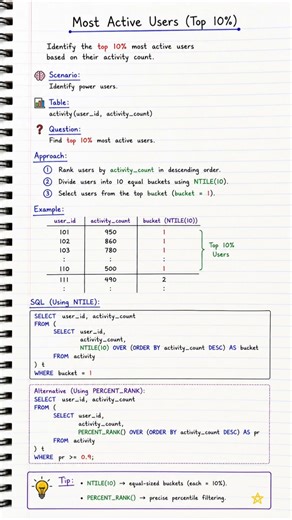 Most Active Users (Top 10%)
Identify the top 10% most active users
based on their activity count.
Scenario:
Identify power users.
Table:
activity(user_id, activity_count)
? Question:
Find top 10% most active users.
Approach:
1 Rank users by activity_count in descending order.
2 Divide users into 10 equal buckets using NTILE(10).
3 Select users from the top bucket (bucket = 1).
Example:
user_id activity_count bucket (NTILE(10))
101 950 1
102 860 1
103 780 1
: : :
110 500 1
111 490 2
: : :
Top 10%
Users
SQL (Using NTILE):
SELECT user_id, activity_count
FROM (
SELECT user_id,
activity_count,
NTILE(10) OVER (ORDER BY activity_count DESC) AS bucket
FROM activity
) t
WHERE bucket = 1
Alternative (Using PERCENT_RANK):
SELECT user_id, activity_count
FROM (
SELECT user_id,
activity_count,
PERCENT_RANK() OVER (ORDER BY activity_count DESC) AS pr
FROM activity
) t
WHERE pr >= 0.9;
Tip:
• NTILE(10) → equal-sized buckets (each = 10%).
• PERCENT_RANK() → precise percentile filtering.